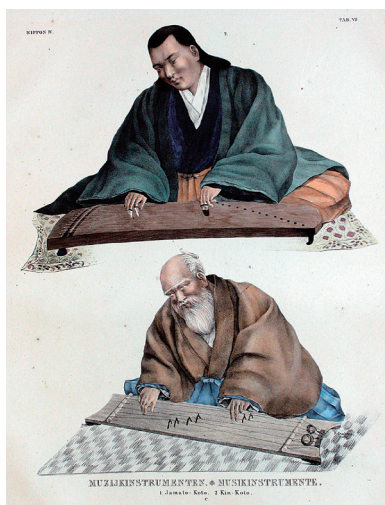 NIPPON IV.
TAB. VI
2.
MUZIJKINSTRUMENTEN. ✽ MUSIKINSTRUMENTE.
1 Jamato-Koto. 2 Kin-Koto.